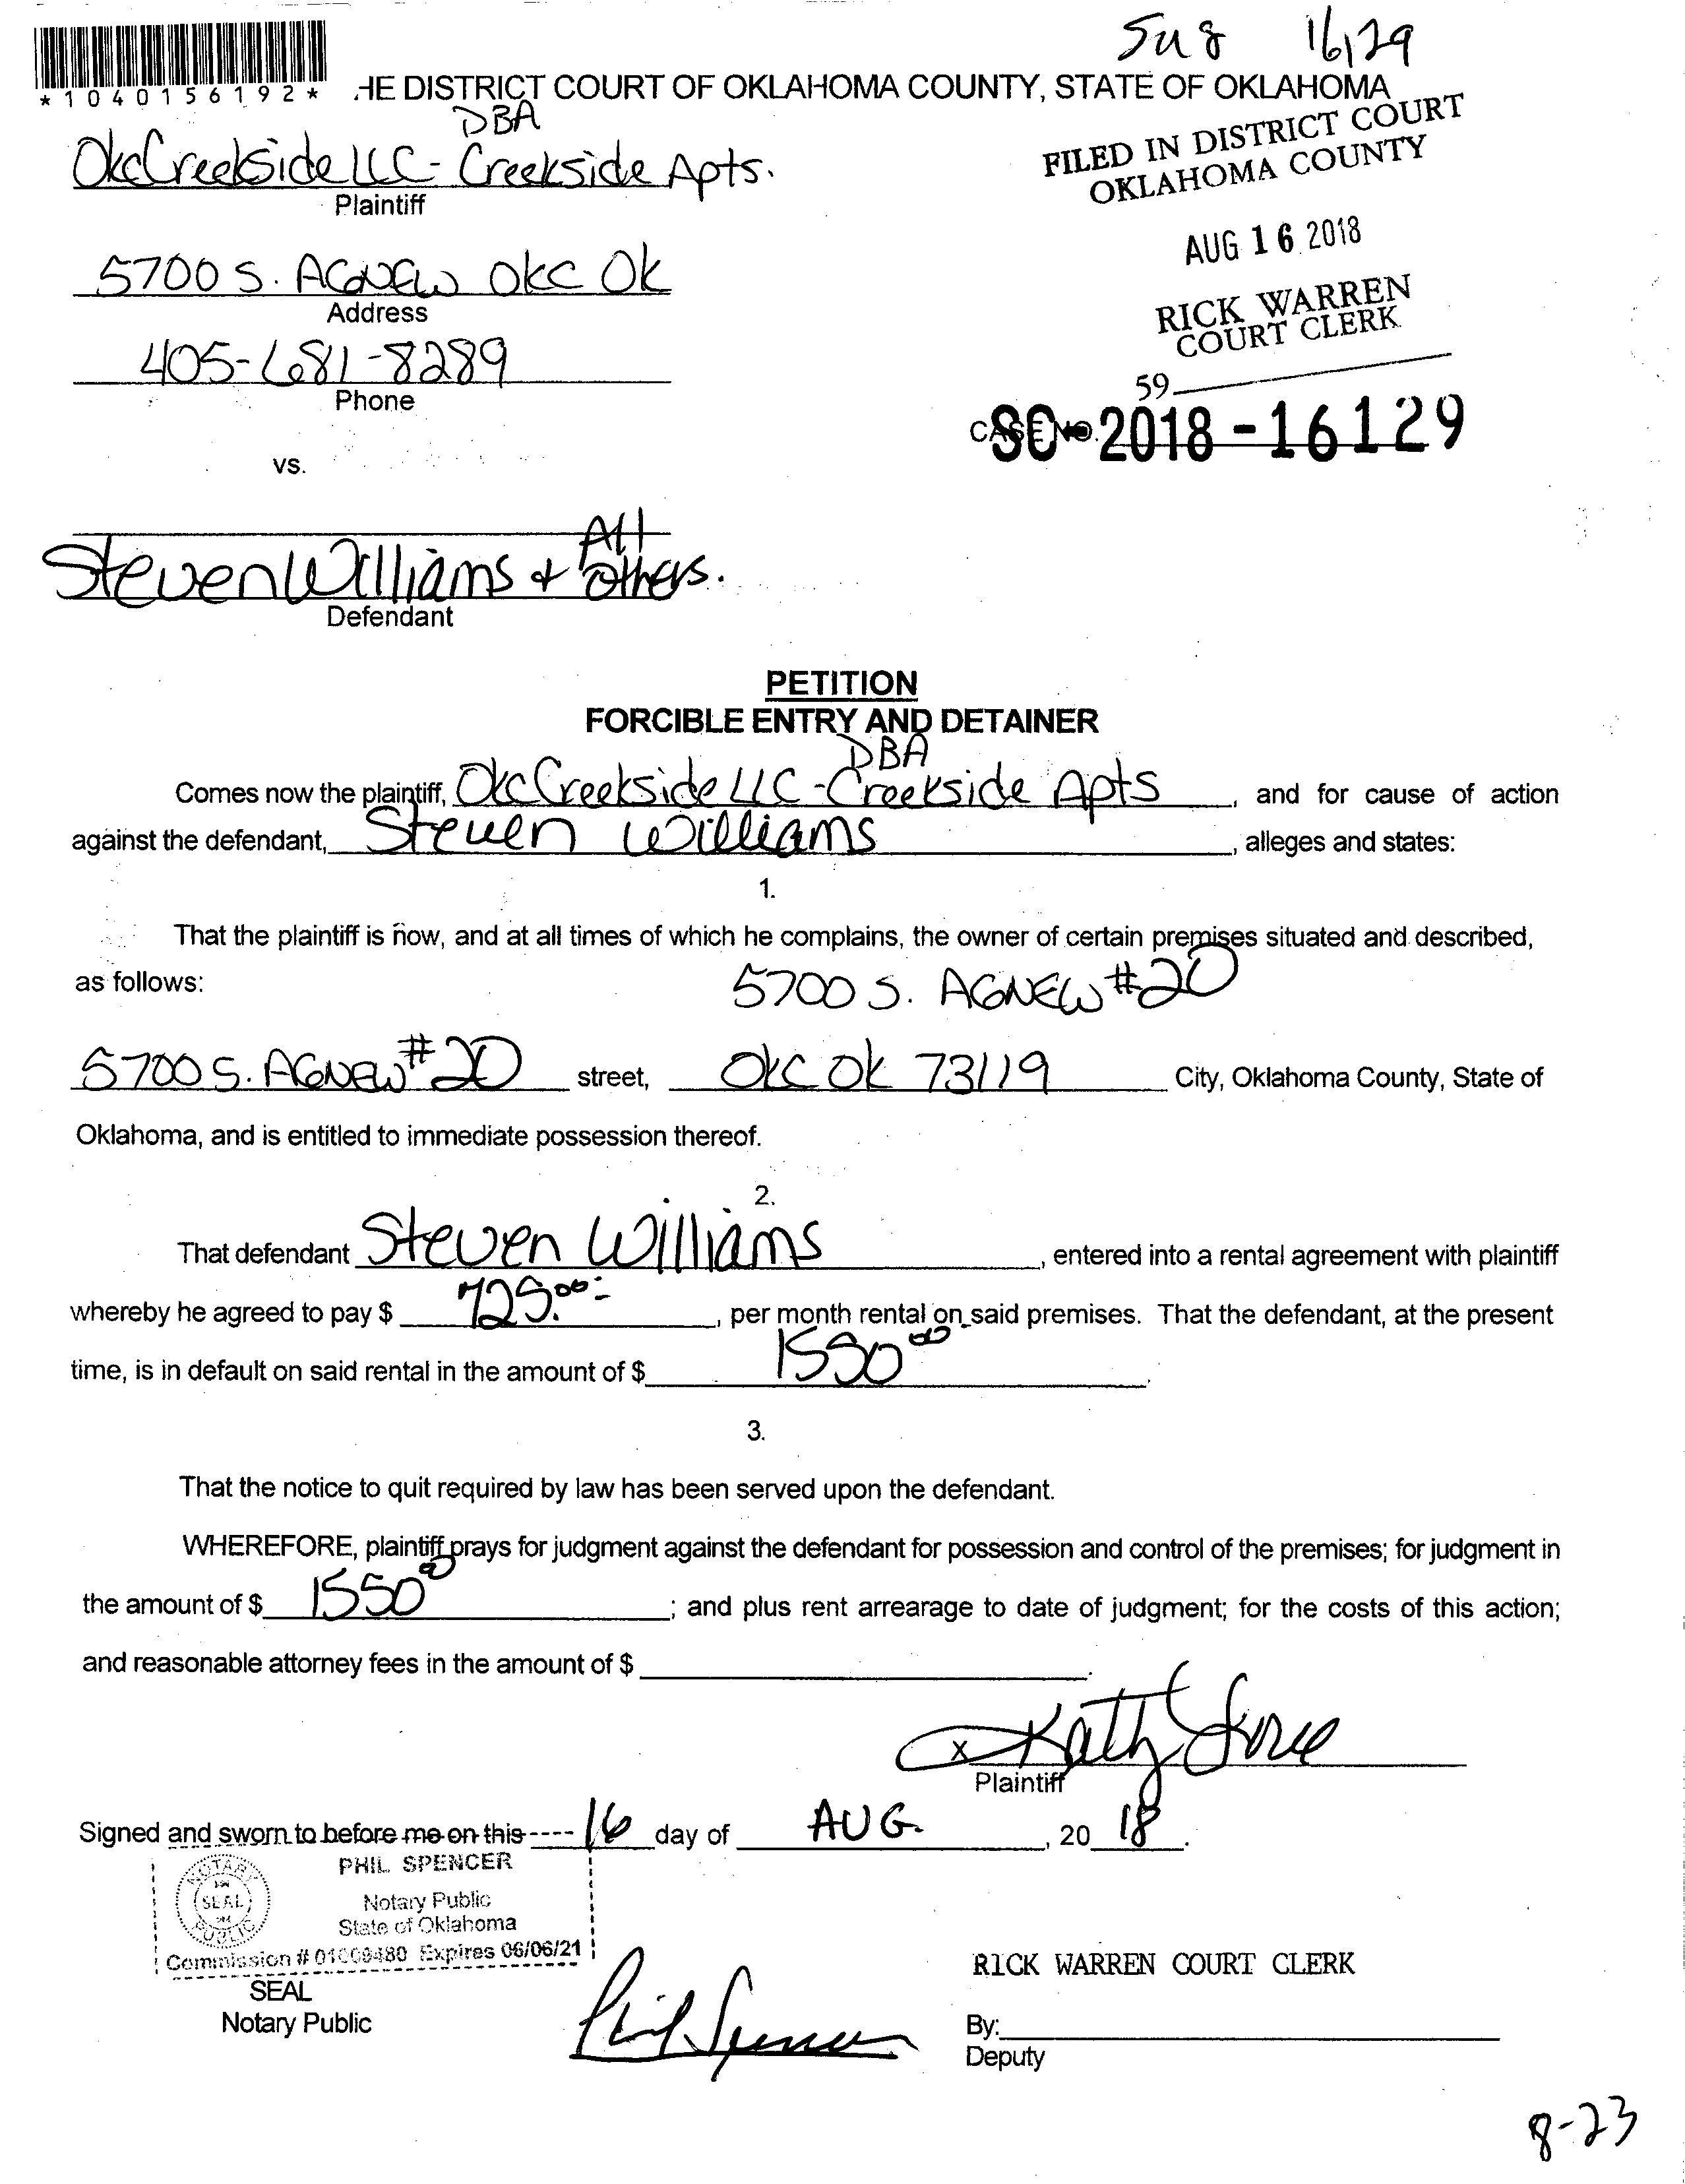 16129
*1040156192*
HE DISTRICT COURT OF OKLAHOMA COUNTY, STATE OF OKLAHOMA
DBA
OkcCreekside LLC - Creekside Apts.
Plaintiff
FILED IN DISTRICT COURT
OKLAHOMA COUNTY
5700 S. AGNEW OKC OK
Address
AUG 16 2018
405-681-8289
Phone
RICK WARREN
COURT CLERK
59
CASE NO. SC-2018-16129
vs.
Steven Williams + All others.
Defendant
PETITION
FORCIBLE ENTRY AND DETAINER
DBA
Comes now the plaintiff, Okc Creekside LLC - Creekside Apts, and for cause of action
against the defendant, Steven Williams, alleges and states:
1.
That the plaintiff is now, and at all times of which he complains, the owner of certain premises situated and described,
as follows: 5700 S. AGNEW #20
5700 S. AGNEW #20 street, OKC OK 73119 City, Oklahoma County, State of
Oklahoma, and is entitled to immediate possession thereof.
2.
That defendant Steven Williams, entered into a rental agreement with plaintiff
whereby he agreed to pay $ 725.00, per month rental on said premises. That the defendant, at the present
time, is in default on said rental in the amount of $ 1550 00.
3.
That the notice to quit required by law has been served upon the defendant.
WHEREFORE, plaintiff prays for judgment against the defendant for possession and control of the premises; for judgment in
the amount of $ 1550 00; and plus rent arrearage to date of judgment; for the costs of this action;
and reasonable attorney fees in the amount of $ .
x Kathy
Plaintiff
Signed and sworn to before me on this 16 day of AUG., 20 18.
PHIL SPENCER
Notary Public
State of Oklahoma
NOTARY PUBLIC
SEAL
Commission # 01009480 Expires 06/06/21
SEAL
Notary Public
Phil Spencer
RICK WARREN COURT CLERK
By:
Deputy
8-23